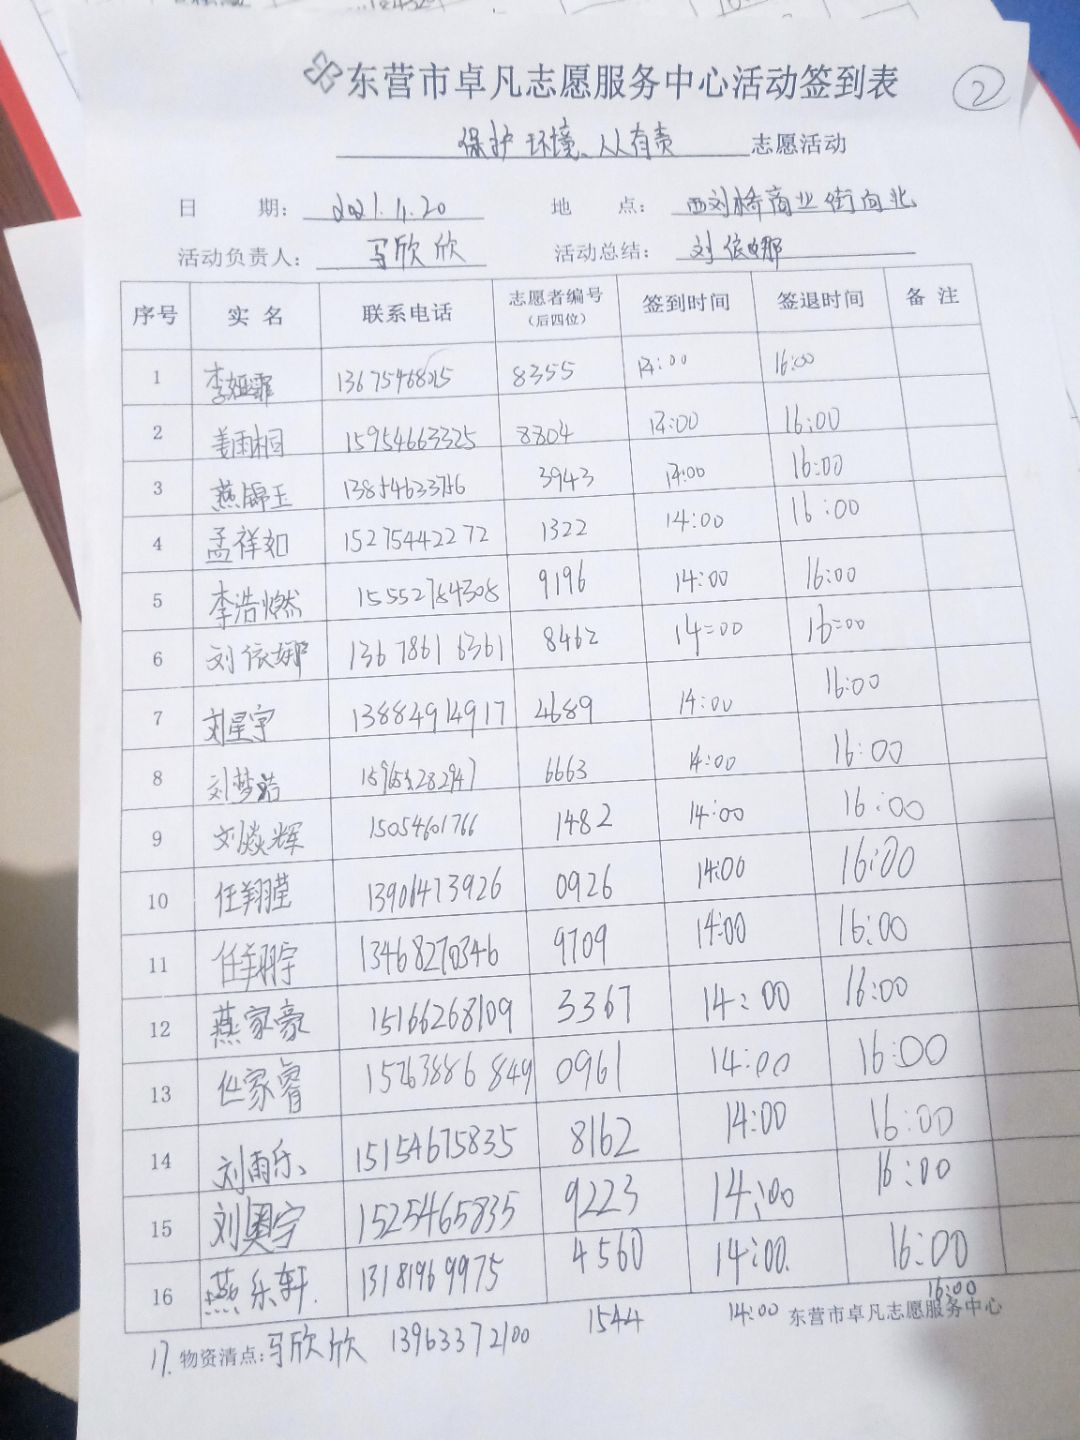 东营市卓凡志愿服务中心活动签到表 ②
保护环境、人人有责 志愿活动
日 期： 2021.11.20 地 点： 西刘桥商业街向北
活动负责人： 马欣欣 活动总结： 刘依娜
序号 实 名 联系电话 志愿者编号（后四位） 签到时间 签退时间 备 注
1 李娅霏 13675468015 8355 14:00 16:00
2 姜雨桐 15954663325 8804 14:00 16:00
3 燕锦玉 13854633756 3943 14:00 16:00
4 孟祥如 15275442272 1322 14:00 16:00
5 李浩燃 15552784308 9196 14:00 16:00
6 刘依娜 13678616361 8462 14:00 16:00
7 刘星宇 13884914917 4689 14:00 16:00
8 刘梦浩 6663 14:00 16:00
9 刘焱辉 15054601766 1482 14:00 16:00
10 任翔莹 13901473926 0926 14:00 16:00
11 任翔宇 13468270346 9709 14:00 16:00
12 燕家豪 15166268109 3367 14:00 16:00
13 任家睿 15263886849 0961 14:00 16:00
14 刘雨乐 15154675835 8162 14:00 16:00
15 刘奥宁 15254665835 9223 14:00 16:00
16 燕乐轩. 13181969975 4560 14:00. 16:00
17. 物资清点: 马欣欣 13963372100 1544 14:00 16:00
东营市卓凡志愿服务中心